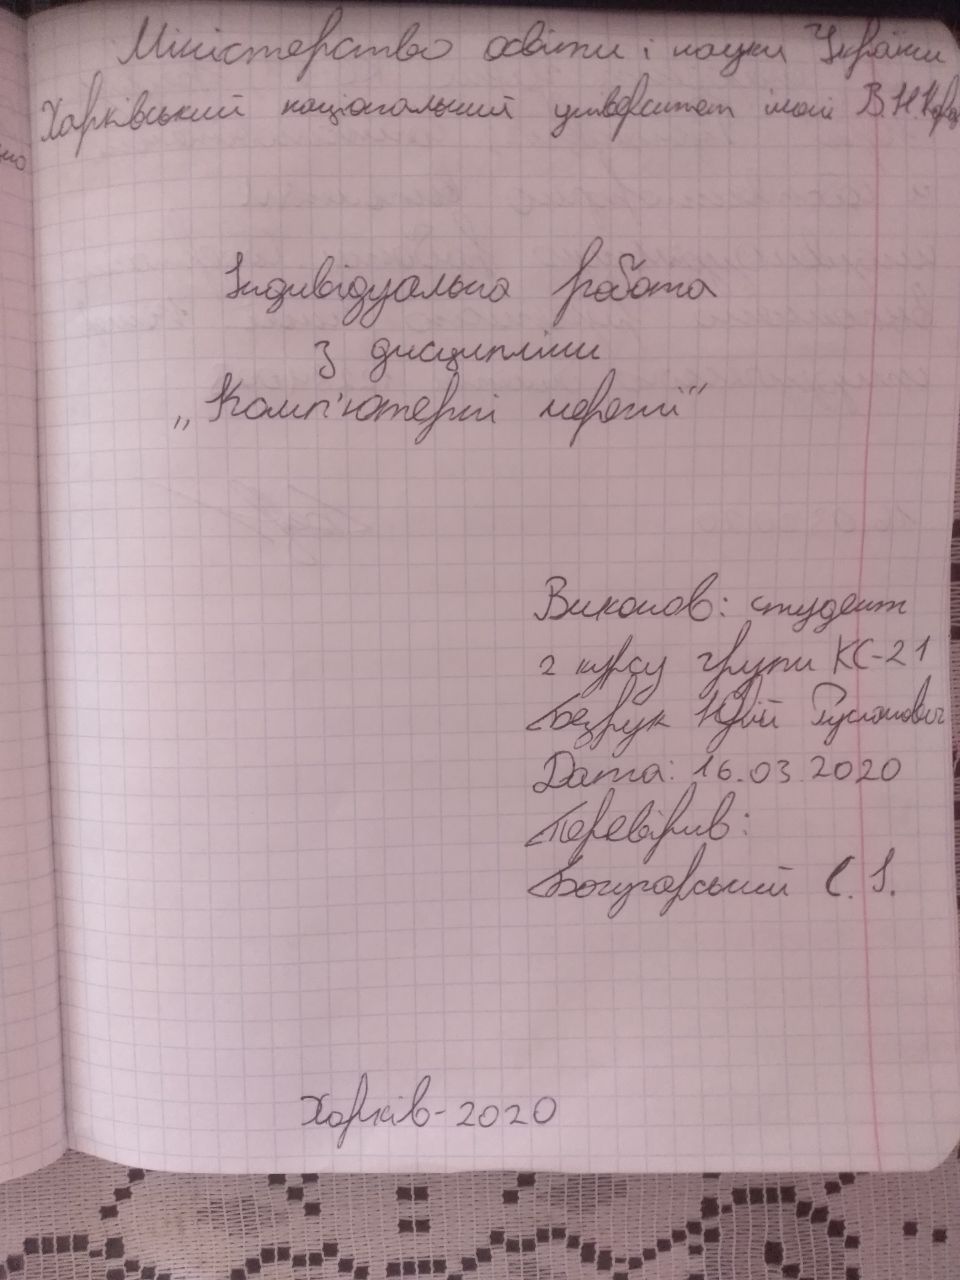 Міністерство освіти і науки України
Харківський національний університет імені В.Н.Кара
Індивідуальна робота
з дисципліни
„Комп'ютерні мережі"
Виконав: студент
2 курсу групи КС-21
Безрук Юрій Русланович
Дата: 16.03.2020
Перевірив:
Богучарський С. І.
Харків-2020